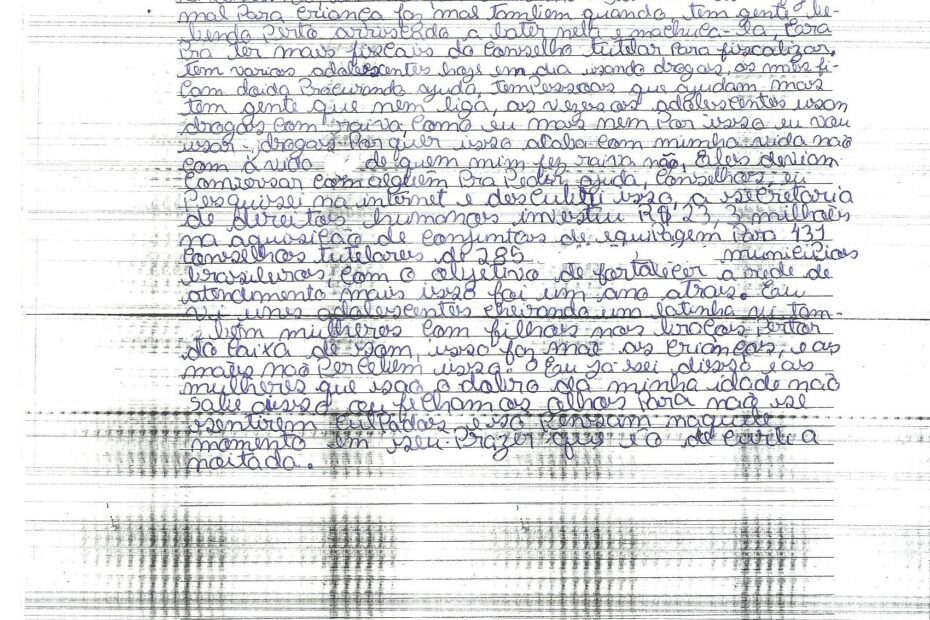 mal para criança faz mal também quando tem gente be-
bendo perto arriscado a bater nela e machuca-la, Cara
Pra ter mais fiscais do Conselho tutelar Para fiscalizar,
tem varios adolescentes hoje em dia usando drogas, as mães fi-
cam doida Procurando ajuda, tem pessoas que ajudam mas
tem gente que nem liga, as vezes os adolescentes usam
drogas com raiva, como eu mais nem por isso eu vou
usar drogas Por quer isso acaba com minha vida não
com a vida de quem mim fez raiva não, Eles deviam
Conversar com alguém Pra Pedir ajuda, Conselhos, eu
Pesquisei na internet e descubri isso, a secretaria
de direitos humanos investiu R$ 23,3 milhões
na aquisição de conjuntos de equipagem Para 431
conselhos tutelares de 285 municipios
brasileiros, com o objetivo de fortalecer a rede de
atendimento mais isso foi um ano atrais. Eu
vi unes adolescentes cheirando um latinha vi tam-
bem mulheres com filhos nos braços Pertor
da caixa de som, isso faz mal as crianças, e as
mães não Percebem isso? Eu já sei disso e as
mulheres que são o dobro da minha idade não
sabe disso ou ficham os olhos Para não se
sentirem culpadas e só Pensam naquele
momento em seu Prazer que é o de curti a
noitada.